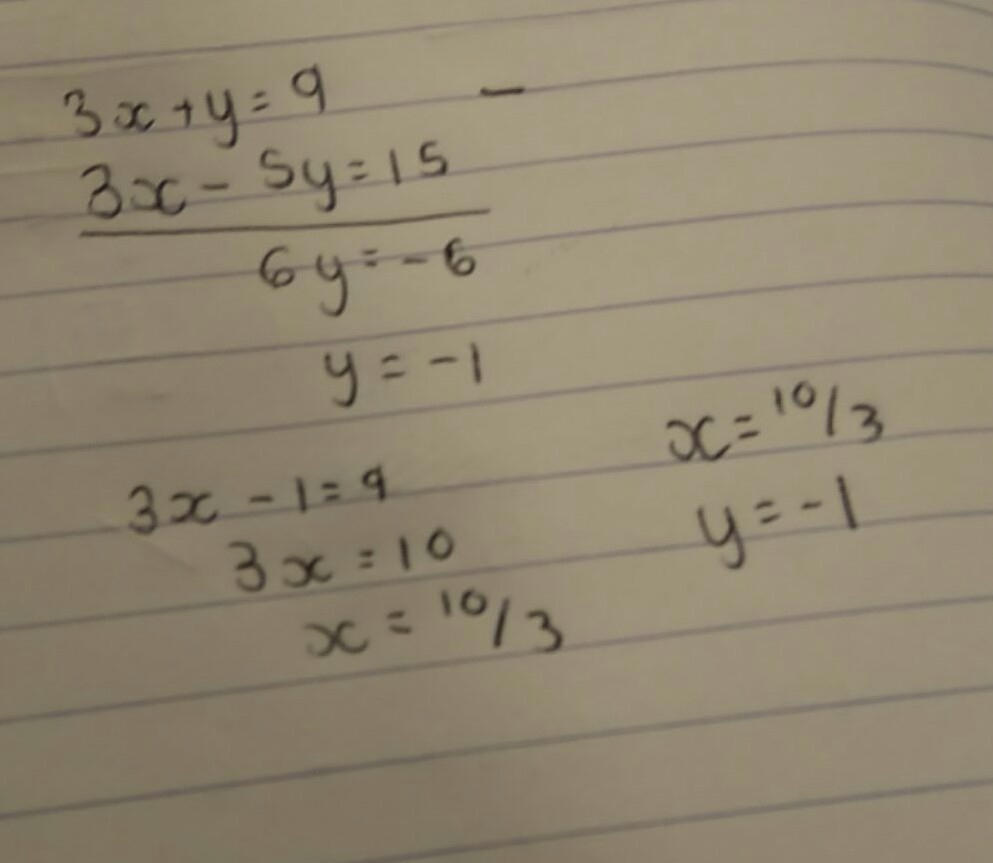 3x + y = 9 -
3x - 5y = 15
6y = -6
y = -1
3x - 1 = 9
3x = 10
x = 10/3
x = 10/3
y = -1